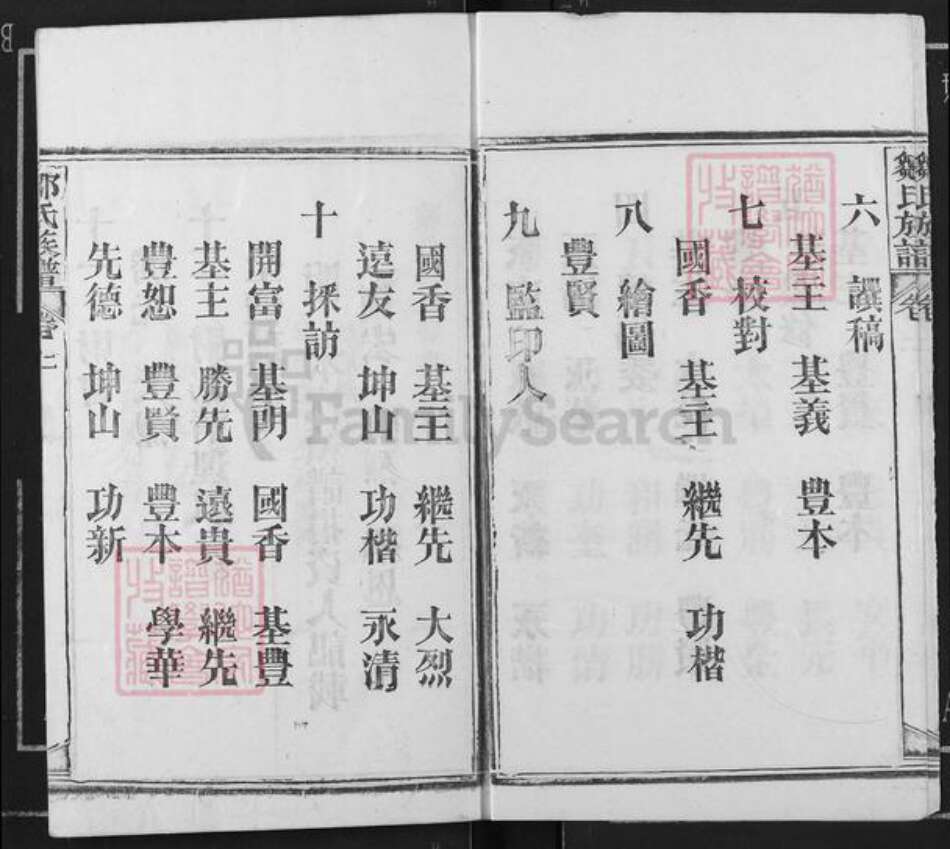 六 譔稿
基主 基義 豐本
七 校對
國香 基主 繼先 功楷
八 繪圖
豐賢
九 監印人
國香 基主 繼先 大烈
遠友 坤山 功楷 永清
十 採訪
開富 基明 國香 基豐
基主 勝先 遠貴 繼先
豐恕 豐賢 豐本 學華
先德 坤山 功新
鄒氏族譜
FamilySearch